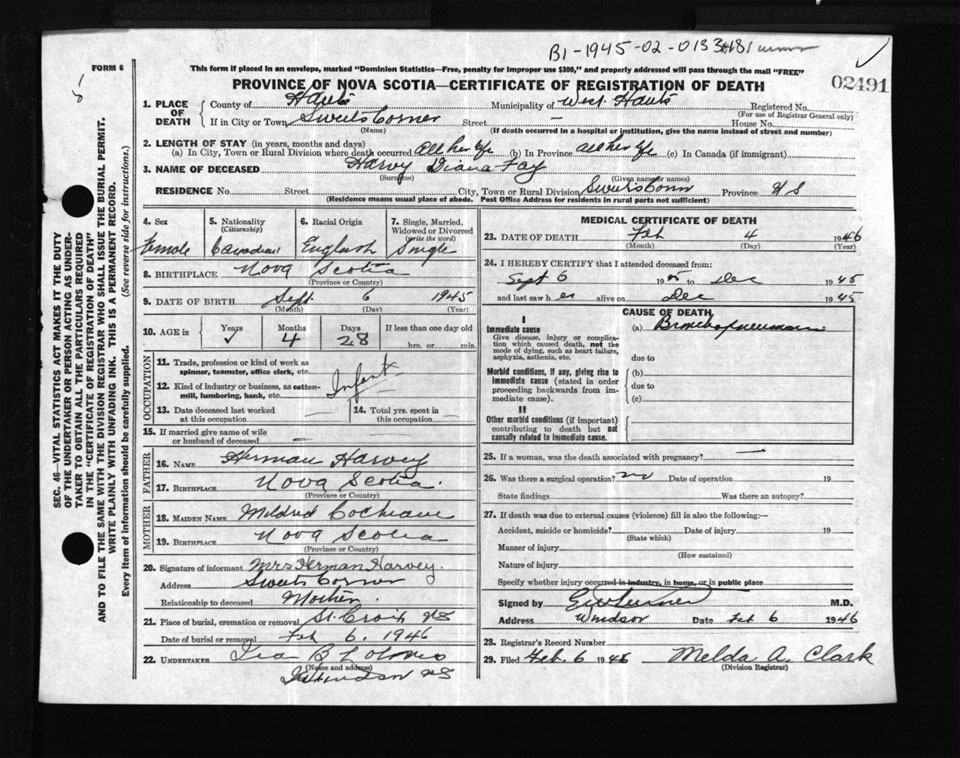 B1-1945-02-013348
02491
FORM 6
This form if placed in an envelope, marked "Dominion Statistics—Free, penalty for improper use $300," and properly addressed will pass through the mail "FREE"
PROVINCE OF NOVA SCOTIA—CERTIFICATE OF REGISTRATION OF DEATH
SEC. 46—VITAL STATISTICS ACT MAKES IT THE DUTY
OF THE UNDERTAKER OR PERSON ACTING AS UNDER-
TAKER TO OBTAIN ALL THE PARTICULARS REQUIRED
IN THE "CERTIFICATE OF REGISTRATION OF DEATH"
AND TO FILE THE SAME WITH THE DIVISION REGISTRAR WHO SHALL ISSUE THE BURIAL PERMIT.
WRITE PLAINLY WITH UNFADING INK. THIS IS A PERMANENT RECORD.
Every item of information should be carefully supplied. (See reverse side for instructions.)
1. PLACE OF DEATH County of Hants Municipality of West Hants Registered No.
(For use of Registrar General only)
If in City or Town Sweets Corner Street — House No.
(Name) (If death occurred in a hospital or institution, give the name instead of street and number)
2. LENGTH OF STAY (in years, months and days)
(a) In City, Town or Rural Division where death occurred all her life (b) In Province all her life (c) In Canada (if immigrant)
3. NAME OF DECEASED Harvey Diana Fay
(Surname) (Given name or names)
RESIDENCE No. Street City, Town or Rural Division Sweets Corner Province N S
(Residence means usual place of abode. Post Office Address for residents in rural parts not sufficient)
4. Sex Female
5. Nationality (Citizenship) Canadian
6. Racial Origin English
7. Single, Married, Widowed or Divorced (write the word) Single
8. BIRTHPLACE Nova Scotia
(Province or Country)
9. DATE OF BIRTH Sept. 6 1945
(Month) (Day) (Year)
10. AGE in Years Months 4 Days 28 If less than one day old
hrs. or min.
OCCUPATION
11. Trade, profession or kind of work as
spinner, teamster, office clerk, etc. Infant
12. Kind of industry or business, as cotten-
mill, lumbering, bank, etc.
13. Date deceased last worked
at this occupation
14. Total yrs. spent in
this occupation
15. If married give name of wife
or husband of deceased —
FATHER
16. NAME Herman Harvey
17. BIRTHPLACE Nova Scotia.
(Province or Country)
MOTHER
18. MAIDEN NAME Mildred Cochrane
19. BIRTHPLACE Nova Scotia
(Province or Country)
20. Signature of informant Mrs Herman Harvey.
Address Sweets Corner
Relationship to deceased Mother.
21. Place of burial, cremation or removal St. Croix NS
Date of burial or removal Feb 6. 1946
22. UNDERTAKER Ira B
(Name and address)
Windsor NS
MEDICAL CERTIFICATE OF DEATH
23. DATE OF DEATH Feb 4 1946
(Month) (Day) (Year)
24. I HEREBY CERTIFY that I attended deceased from:
Sept 6 1945 to Dec 1945
and last saw her alive on Dec 1945
CAUSE OF DEATH
I
Immediate cause (a) Bronchopneumonia
Give disease, injury or complica-
tion which caused death, not the
mode of dying, such as heart failure,
asphyxia, asthenia, etc. due to
Morbid conditions, if any, giving rise to
immediate cause (stated in order
proceeding backwards from im-
mediate cause). (b)
due to
(c)
II
Other morbid conditions (if important)
contributing to death but not
causally related to immediate cause.
25. If a woman, was the death associated with pregnancy? —
26. Was there a surgical operation? no Date of operation 19
State findings Was there an autopsy?
27. If death was due to external causes (violence) fill in also the following:—
Accident, suicide or homicide? Date of injury 19
(State which)
Manner of injury
(How sustained)
Nature of injury
Specify whether injury occurred in industry, in home, or in public place
Signed by M.D.
Address Windsor Date Feb 6 1946
28. Registrar's Record Number
29. Filed Feb. 6 1946 Melda A. Clark
(Division Registrar)